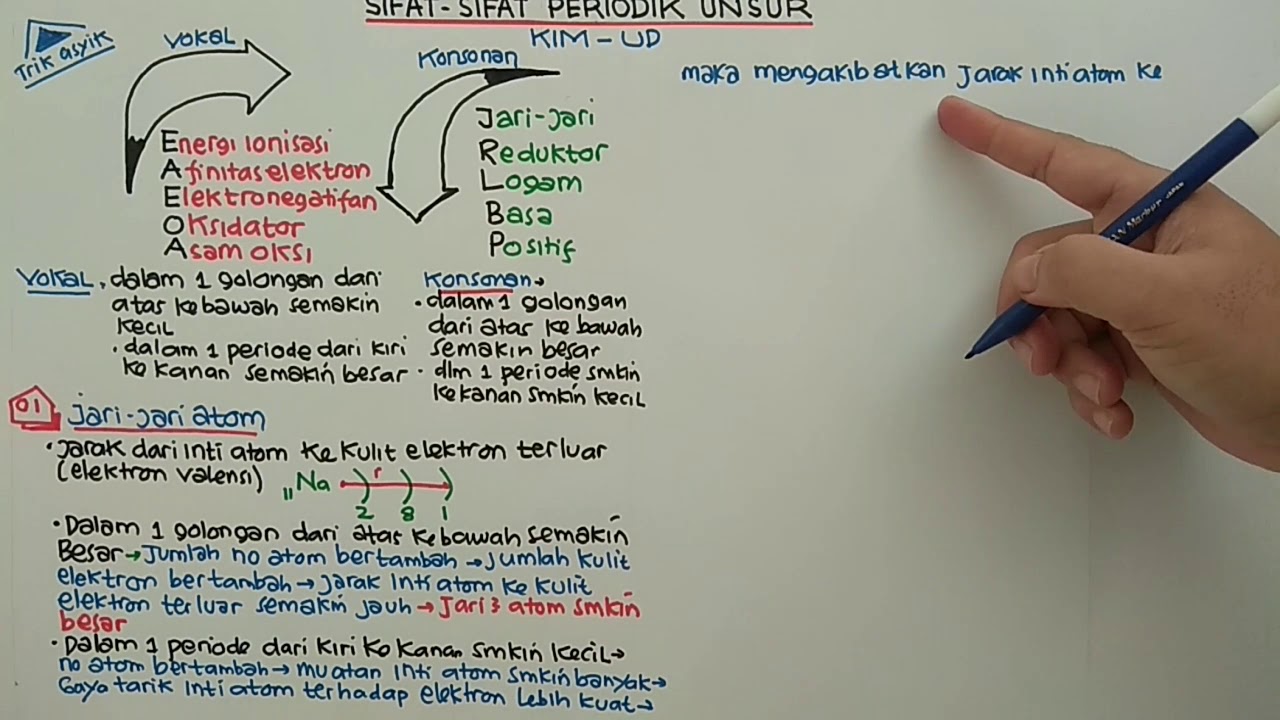 SIFAT-SIFAT PERIODIK UNSUR
KIM-UD
Trik asyik
VOKAL
Energi Ionisasi
Afinitas elektron
Elektronegatifan
Oksidator
Asam oksi
Konsonan
Jari-jari
Reduktor
Logam
Basa
Positif
VOKAL, dalam 1 golongan dari
atas kebawah semakin
kecil
• dalam 1 periode dari kiri
ke kanan semakin besar
Konsonan→
• dalam 1 golongan
dari atas ke bawah
semakin besar
• dlm 1 periode smkin
kekanan smkin kecil
01 Jari-Jari atom
• Jarak dari inti atom ke kulit elektron terluar
(elektron valensi)
11Na r
2 8 1
• Dalam 1 golongan dari atas kebawah semakin
Besar→Jumlah no atom bertambah→Jumlah kulit
elektron bertambah→Jarak inti atom ke kulit
elektron terluar semakin jauh→Jari² atom smkin
besar
• Dalam 1 periode dari kiri ke kanan smkin kecil→
no atom bertambah→muatan inti atom smkin banyak→
Gaya tarik inti atom terhadap elektron lebih kuat→
maka mengakibatkan Jarak inti atom ke